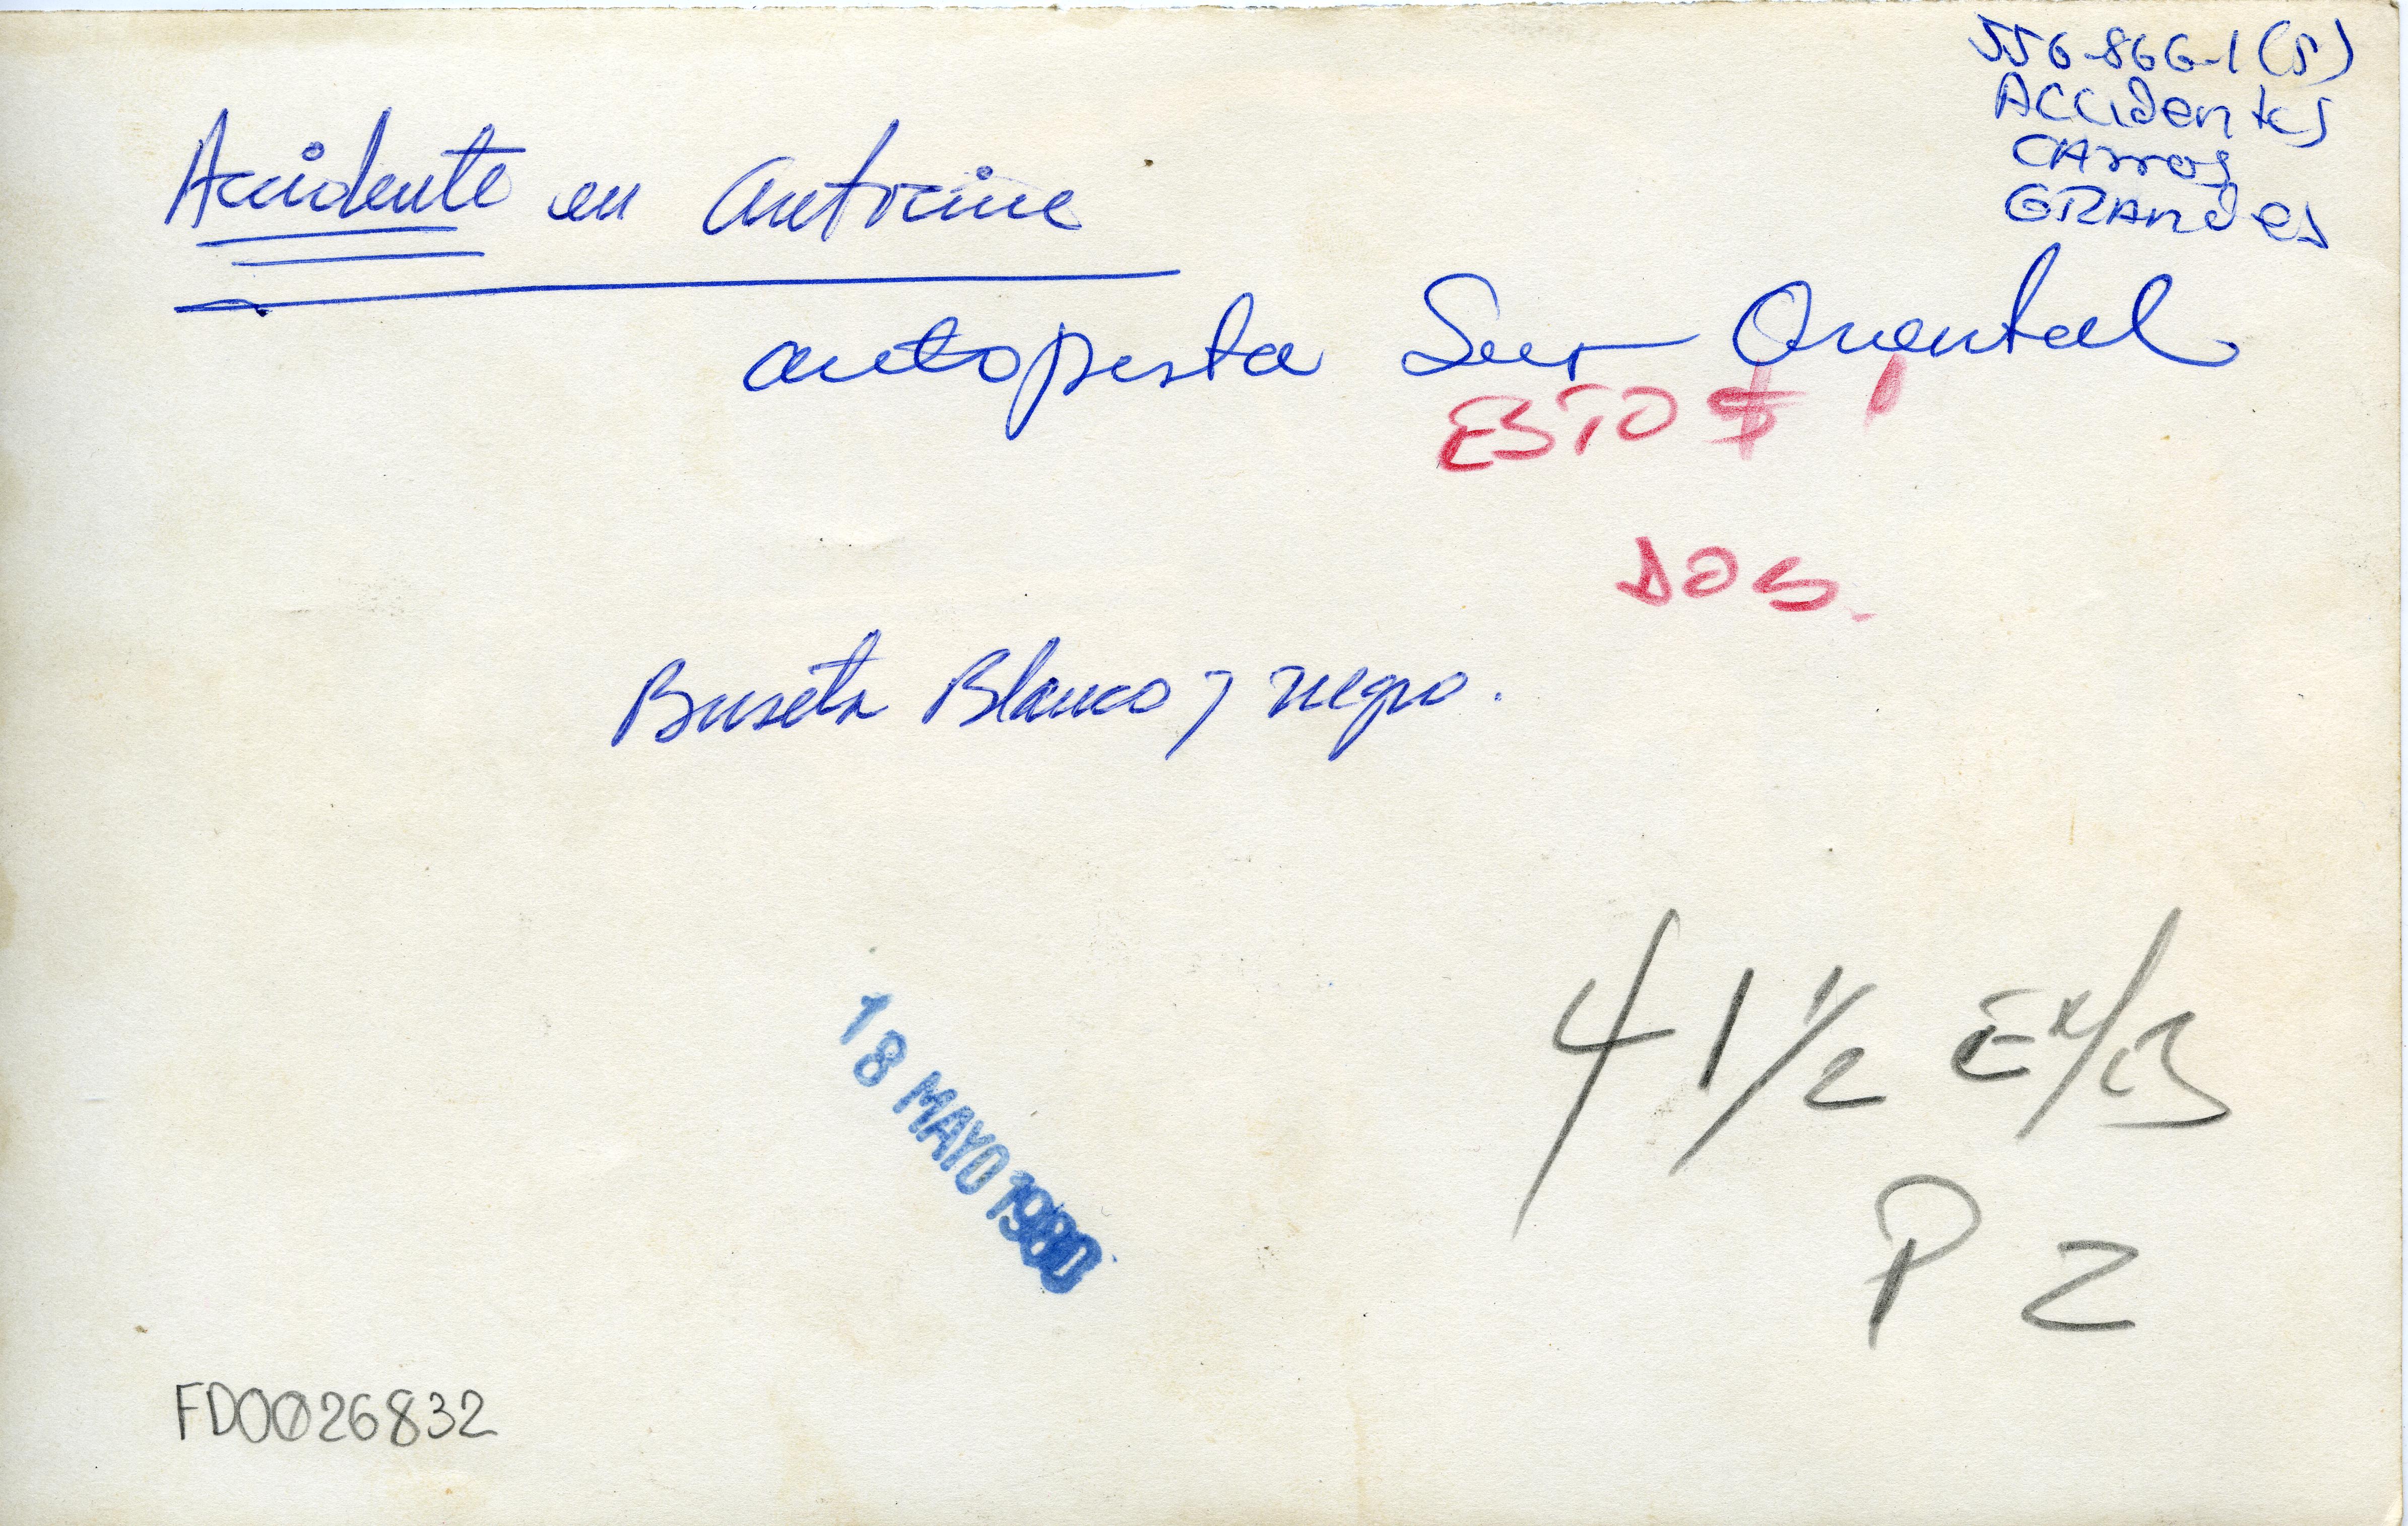 556-866-1 (5)
Accidentes
Carros
Grandes
Accidente en autocine
autopista Sur Oriental
ESTO $ 1
DOS.
Buseta Blanco y negro.
18 MAYO 1980
4 1 1/2
P 2
FD0026832